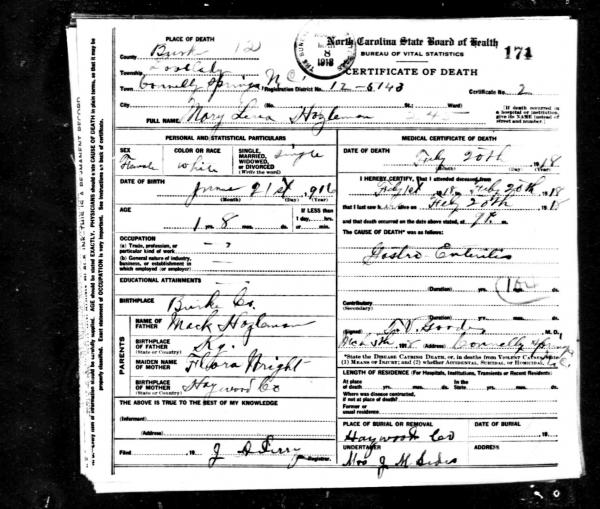 North Carolina State Board of Health
BUREAU OF VITAL STATISTICS
CERTIFICATE OF DEATH
171
8
1918
PLACE OF DEATH
County Burke 12
Township Lovelady
Town Connelly Springs N.C. Registration District No. 12-5143 Certificate No. 2
City No. St.; Ward)
[If death occurred in a hospital or institution, give its NAME instead of street and number.]
FULL NAME Mary Lena Hogleman
PERSONAL AND STATISTICAL PARTICULARS
SEX Female
COLOR OR RACE white
SINGLE, MARRIED, WIDOWED, OR DIVORCED (Write the word) single
DATE OF BIRTH June 21st, 916
(Month) (Day) (Year)
AGE
1 yrs. 8 mos. ds.
If LESS than 1 day, hrs. or min.
OCCUPATION
(a) Trade, profession, or particular kind of work
(b) General nature of industry, business, or establishment in which employed (or employer)
EDUCATIONAL ATTAINMENTS
BIRTHPLACE Burke Co.
PARENTS
NAME OF FATHER Mack Hogleman
BIRTHPLACE OF FATHER (State or Country) Ky.
MAIDEN NAME OF MOTHER Flora Wright
BIRTHPLACE OF MOTHER (State or Country) Haywood Co
THE ABOVE IS TRUE TO THE BEST OF MY KNOWLEDGE
(Informant)
(Address)
Filed 19 J A Perry Registrar.
MEDICAL CERTIFICATE OF DEATH
DATE OF DEATH Feby 20th 1918
(Month) (Day) (Year)
I HEREBY CERTIFY, That I attended deceased from
Feby 1st 1918, Feby 20th, 1918
that I last saw her alive on Feby 20th 1918
and that death occurred on the date above stated, at 9 P. m.
The CAUSE OF DEATH* was as follows:
Gastro Enteritis
(Duration) yrs. mos. ds.
Contributory (Secondary)
(Duration) yrs. mos. ds.
(Signed) T. V. Goode M. D.
Mch 5th 1918 (Address) Connelly Springs N.C.
*State the DISEASE CAUSING DEATH, or, in deaths from VIOLENT CAUSES, state (1) MEANS OF INJURY; and (2) whether ACCIDENTAL, SUICIDAL, or HOMICIDAL.
LENGTH OF RESIDENCE (For Hospitals, Institutions, Transients or Recent Residents)
At place of death yrs. mos. ds. In the State yrs. mos. ds.
Where was disease contracted, if not at place of death?
Former or usual residence
PLACE OF BURIAL OR REMOVAL Haywood Co
DATE OF BURIAL 19
UNDERTAKER Mrs J. M. Sides
ADDRESS